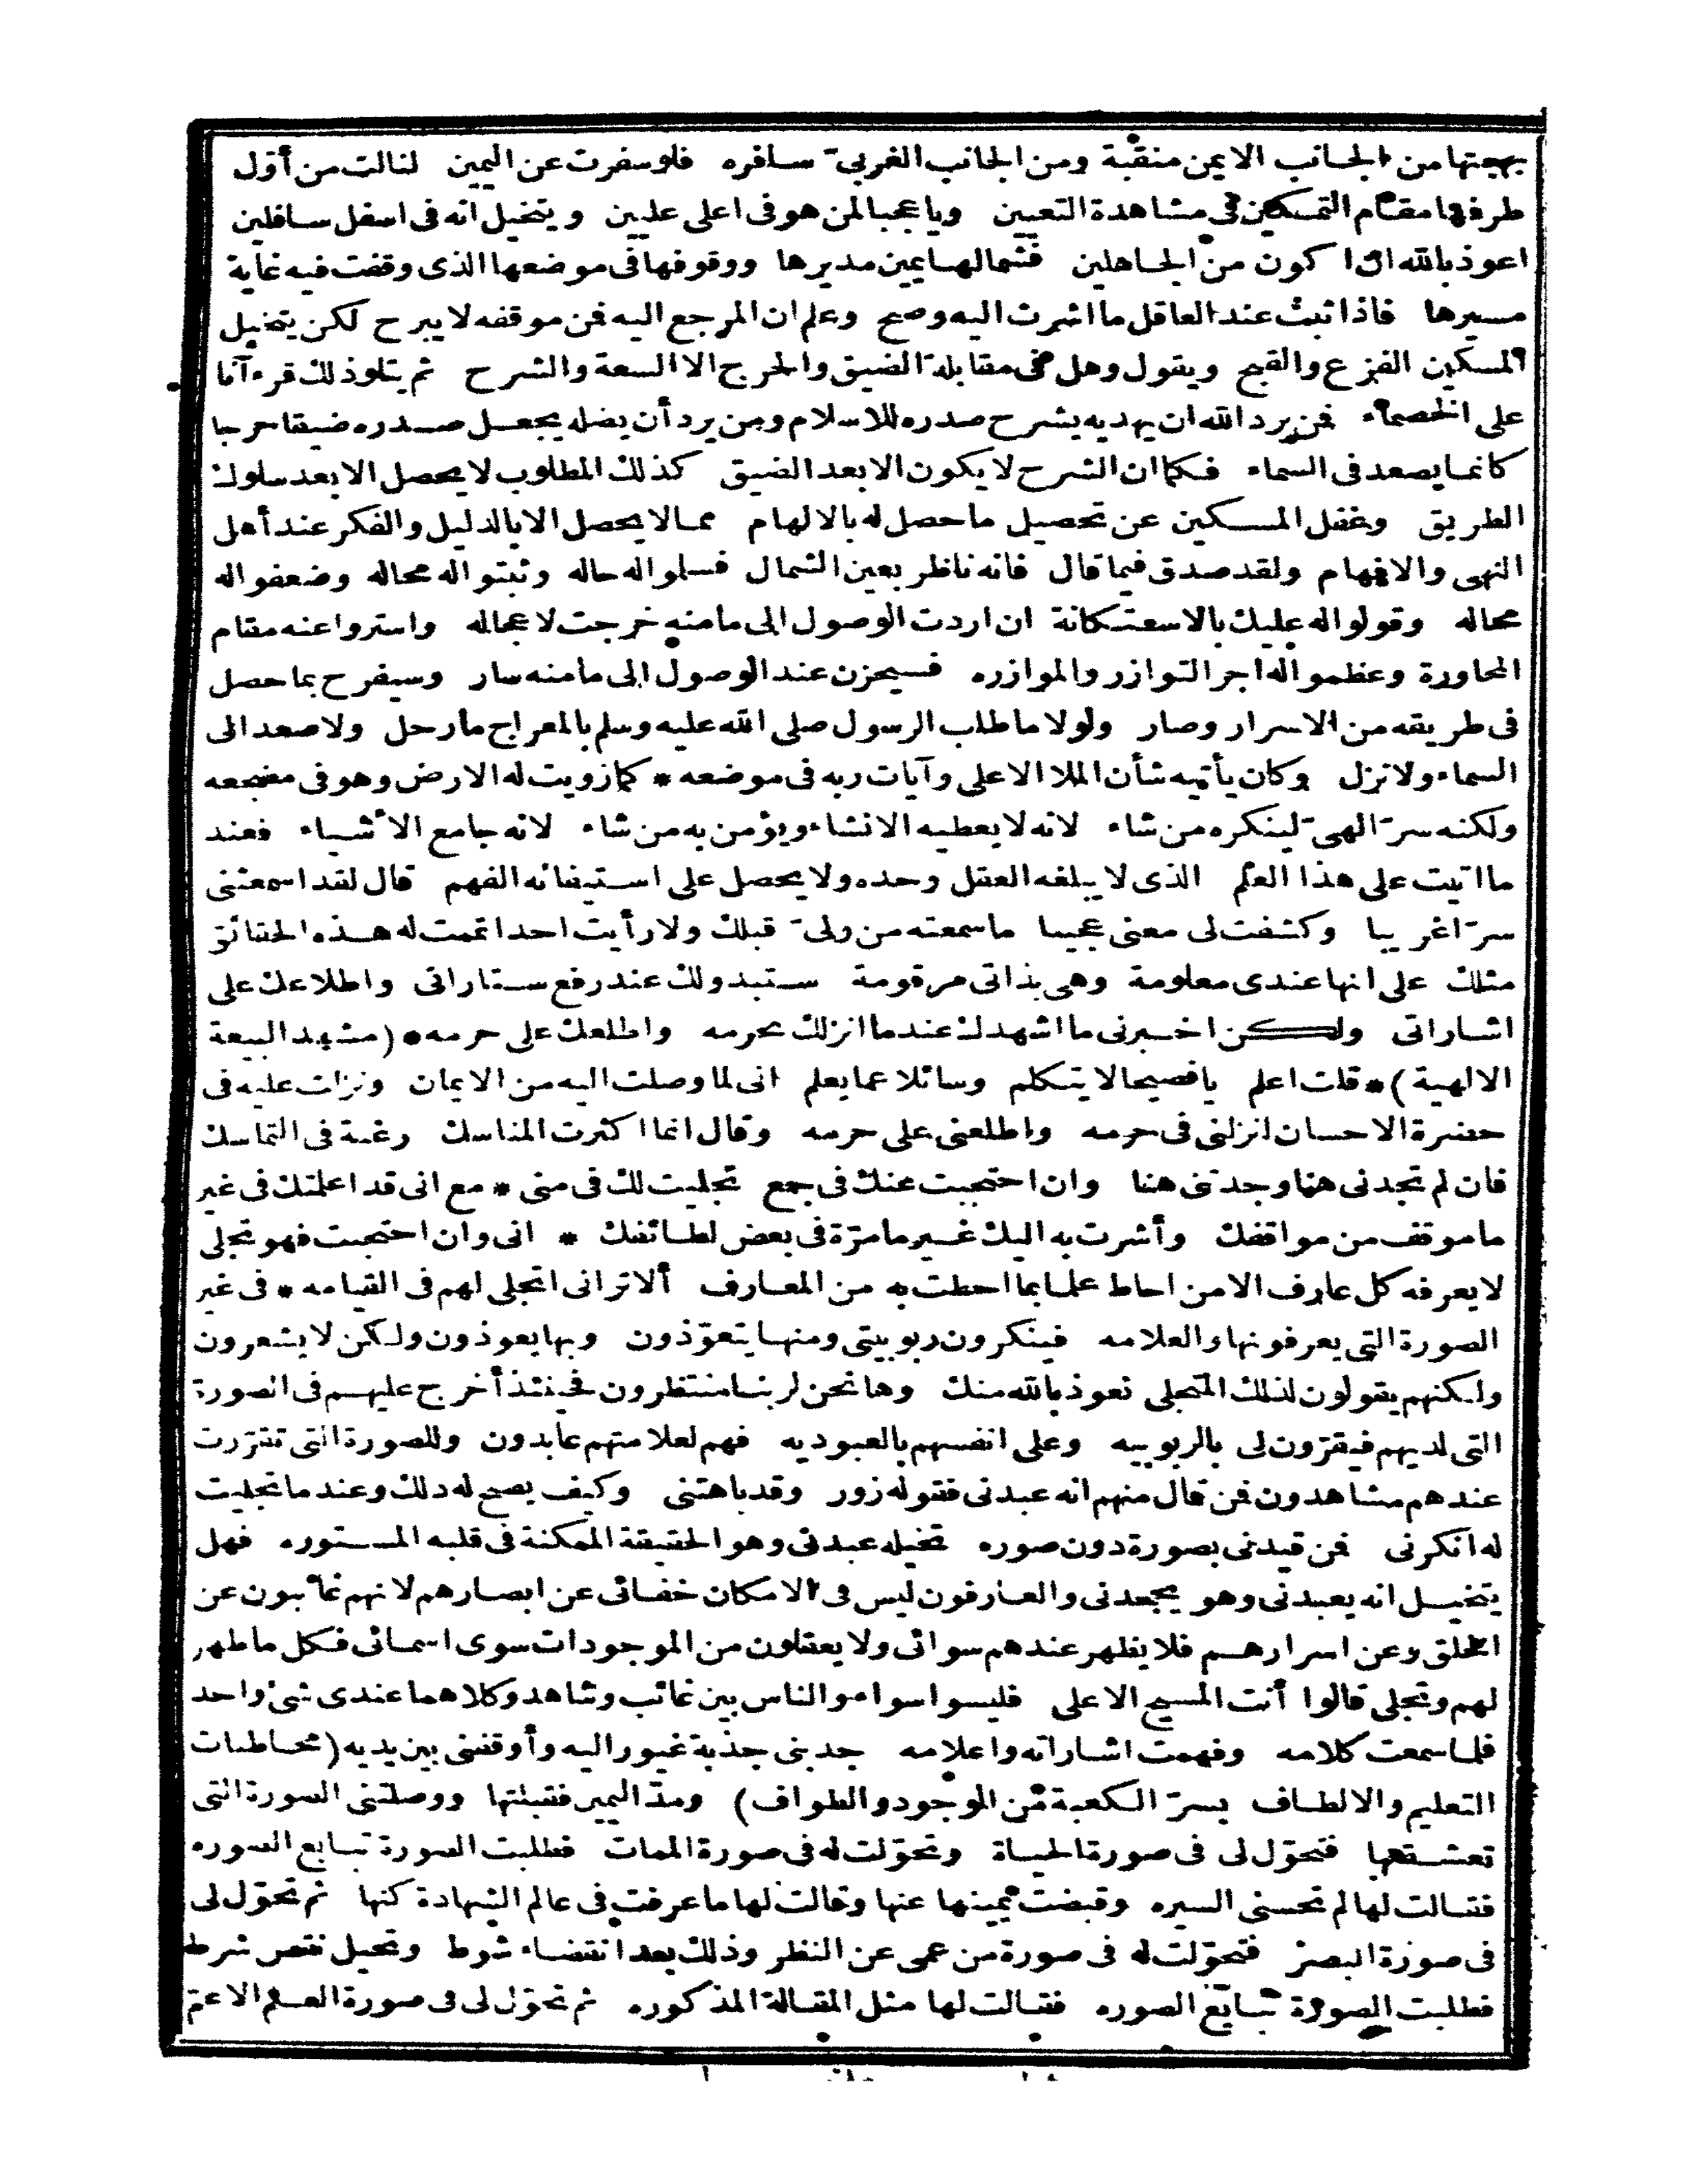 بهجتها من الجانب الايمن منقبة ومن الجانب الغربي سافره فلو سفرت عن اليمين لنالت من أوّل
طرفها مقام التمكين في مشاهدة التعيين ويا عجبا لمن هو فى اعلى عليين ويتخيل انه فى اسفل سافلين
اعوذ بالله ان اكون من الجاهلين فشمالها يمين مديرها ووقوفها فى موضعها الذى وقفت فيه غاية
مسيرها فاذا ثبت عند العاقل ما اشرت اليه وصح وعلم ان المرجع اليه فن موقفه لا يبرح لكن يتخيل
المسكين الفزع والقبح ويقول وهل فى مقابلة الضيق والحرج الا السعة والشرح ثم يتلو ذلك قرءآنا
على الخصماء فمن يرد الله ان يهديه يشرح صدره للاسلام ومن يرد أن يضله يجعل صدره ضيقا حرجا
كانما يصعد فى السماء فكما ان الشرح لا يكون الا بعد الضيق كذلك المطلوب لا يحصل الا بعد سلوك
الطريق وغفل المسكين عن تحصيل ما حصل له بالالهام مما لا يحصل الا بالدليل والفكر عند أهل
النهى والافهام ولقد صدق فيما قال فانه ناظر بعين الشمال فسلوا له حاله وثبتوا له محاله وضعفوا له
محاله وقولوا له عليك بالاستكانة ان اردت الوصول الى ما منه خرجت لا محاله واستروا عنه مقام
المجاورة وعظموا له اجر التوازر والموازره فسيحزن عند الوصول الى ما منه سار وسيفرح بما حصل
فى طريقه من الاسرار وصار ولولا ما طلب الرسول صلى الله عليه وسلم بالمعراج ما رحل ولا صعد الى
السماء ولا نزل وكان يأتيه شأن الملا الاعلى وآيات ربه فى موضعه * كما زويت له الارض وهو فى مضجعه
ولكنه سرّ الهىّ لينكره من شاء لانه لا يعطيه الانشاء ويؤمن به من شاء لانه جامع الأشياء فعند
ما اتيت على هذا العلم الذى لا يبلغه العقل وحده ولا يحصل على استيفائه الفهم قال لقد اسمعتنى
سرّا غريبا وكشفت لى معنى عجيبا ما سمعته من ولىّ قبلك ولا رأيت احدا تممت له هذه الحقائق
مثلك على انها عندى معلومة وهى بذاتى مرقومة ستبدو لك عند رفع ستاراتى واطلاعك على
اشاراتى ولكن اخبرنى ما اشهدك عند ما انزلك بحرمه واطلعك على حرمه * (مشهد البيعة
الالهية) * قلت اعلم يا فصيحا لا يتكلم وسائلا عما يعلم انى لما وصلت اليه من الايمان ونزلت عليه فى
حضرة الاحسان انزلنى فى حرمه واطلعنى على حرمه وقال انما اكثرت المناسك رغبة فى التماسك
فان لم تجدنى هنا وجدتنى هنا وان احتجبت عنك فى جمع تجليت لك فى منى * مع انى قد اعلمتك فى غير
ما موقف من مواقفك وأشرت به اليك غير ما مرّة فى بعض لطائفك * انى وان احتجبت فهو تجلى
لا يعرفه كل عارف الا من احاط علما بما احطت به من المعارف ألا ترانى اتجلى لهم فى القيامه * فى غير
الصورة التى يعرفونها والعلامه فينكرون ربوبيتى ومنها يتعوّذون وبها يعوذون ولكن لا يشعرون
ولكنهم يقولون لذلك المتجلى نعوذ بالله منك وها نحن لربنا منتظرون فحينئذ أخرج عليهم فى الصورة
التى لديهم فيقرّون لى بالربوبيه وعلى انفسهم بالعبوديه فهم لعلامتهم عابدون وللصورة التى تقرّرت
عندهم مشاهدون فمن قال منهم انه عبدنى فقوله زور وقد باهتنى وكيف يصح له ذلك وعند ما تجليت
له انكرنى فمن قيدنى بصورة دون صوره تخيله عبدنى وهو الحقيقة الممكنة فى قلبه المستوره فهل
يتخيل انه يعبدنى وهو يجحدنى والعارفون ليس فى الامكان خفائى عن ابصارهم لانهم غائبون عن
الخلق وعن اسرارهم فلا يظهر عندهم سوائى ولا يعقلون من الموجودات سوى اسمائى فكل ما ظهر
لهم وتجلى قالوا أنت المسبح الاعلى فليسوا سواء والناس بين غائب وشاهد وكلاهما عندى شئ واحد
فلما سمعت كلامه وفهمت اشاراته واعلامه جذبنى جذبة غيور اليه وأوقفنى بين يديه (مخاطبات
التعليم والالطاف بسرّ الكعبة من الوجود والطواف) ومدّ اليمين فقبلتها ووصلتنى الصورة التى
تعشقتها فتحوّل لى فى صورة الحياة وتحوّلت له فى صورة الممات فطلبت الصورة تبايع الصوره
فقالت لها لم تحسنى السيره وقبضت يمينها عنها وقالت لها ما عرفت فى عالم الشهادة كنها ثم تحوّل لى
فى صورة البصر فتحوّلت له فى صورة من عمى عن النظر وذلك بعد انقضاء شوط وتخيل نقص شرط
فطلبت الصورة تبايع الصوره فقالت لها مثل المقالة المذكوره ثم تحوّل لى فى صورة العلم الاعمّ